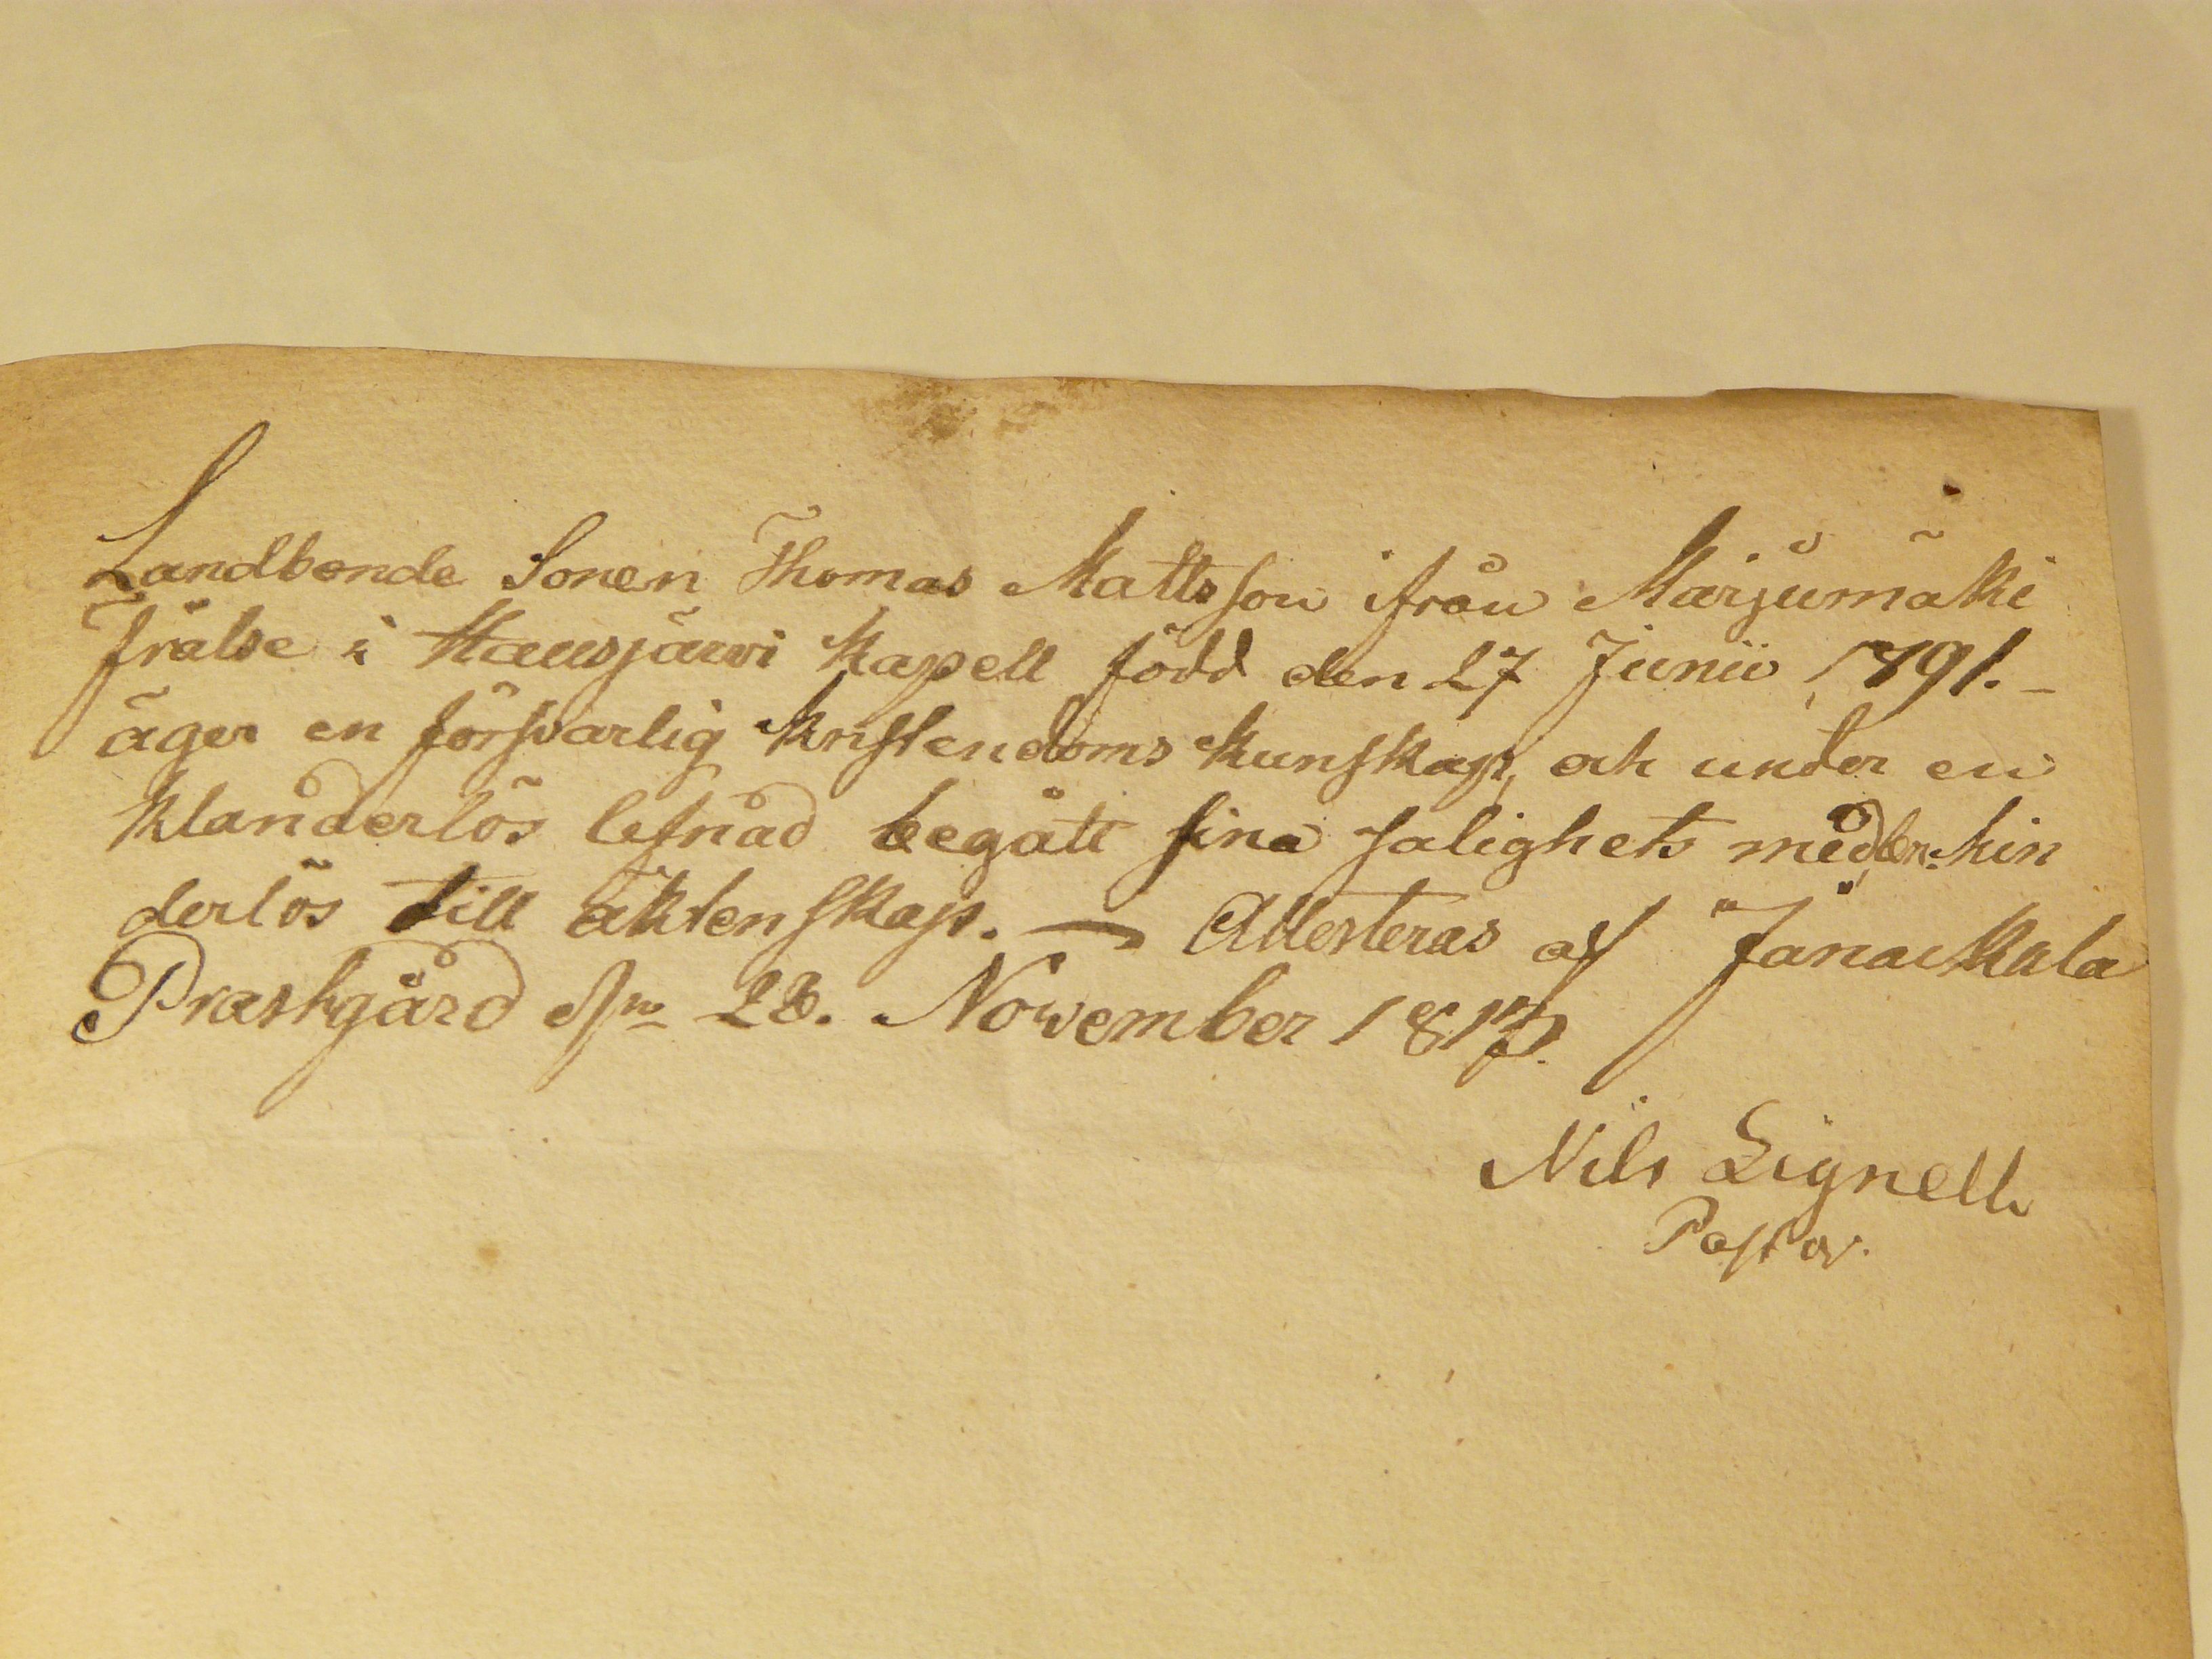 Landbonde Sonen Thomas Mattsson ifrån Marjumäki
Frälse i Hausjärvi Kapell född den 27 Junii 1791. -
äger en försvarlig Kristendoms Kunskap, och under en
Klanderlös lefnad begått sina salighets medlen. hin
derlös till äktenskap. — Attesteras af Janackala
Prästgård d. 28. November 1817.
Nils Lignell
Pastor.